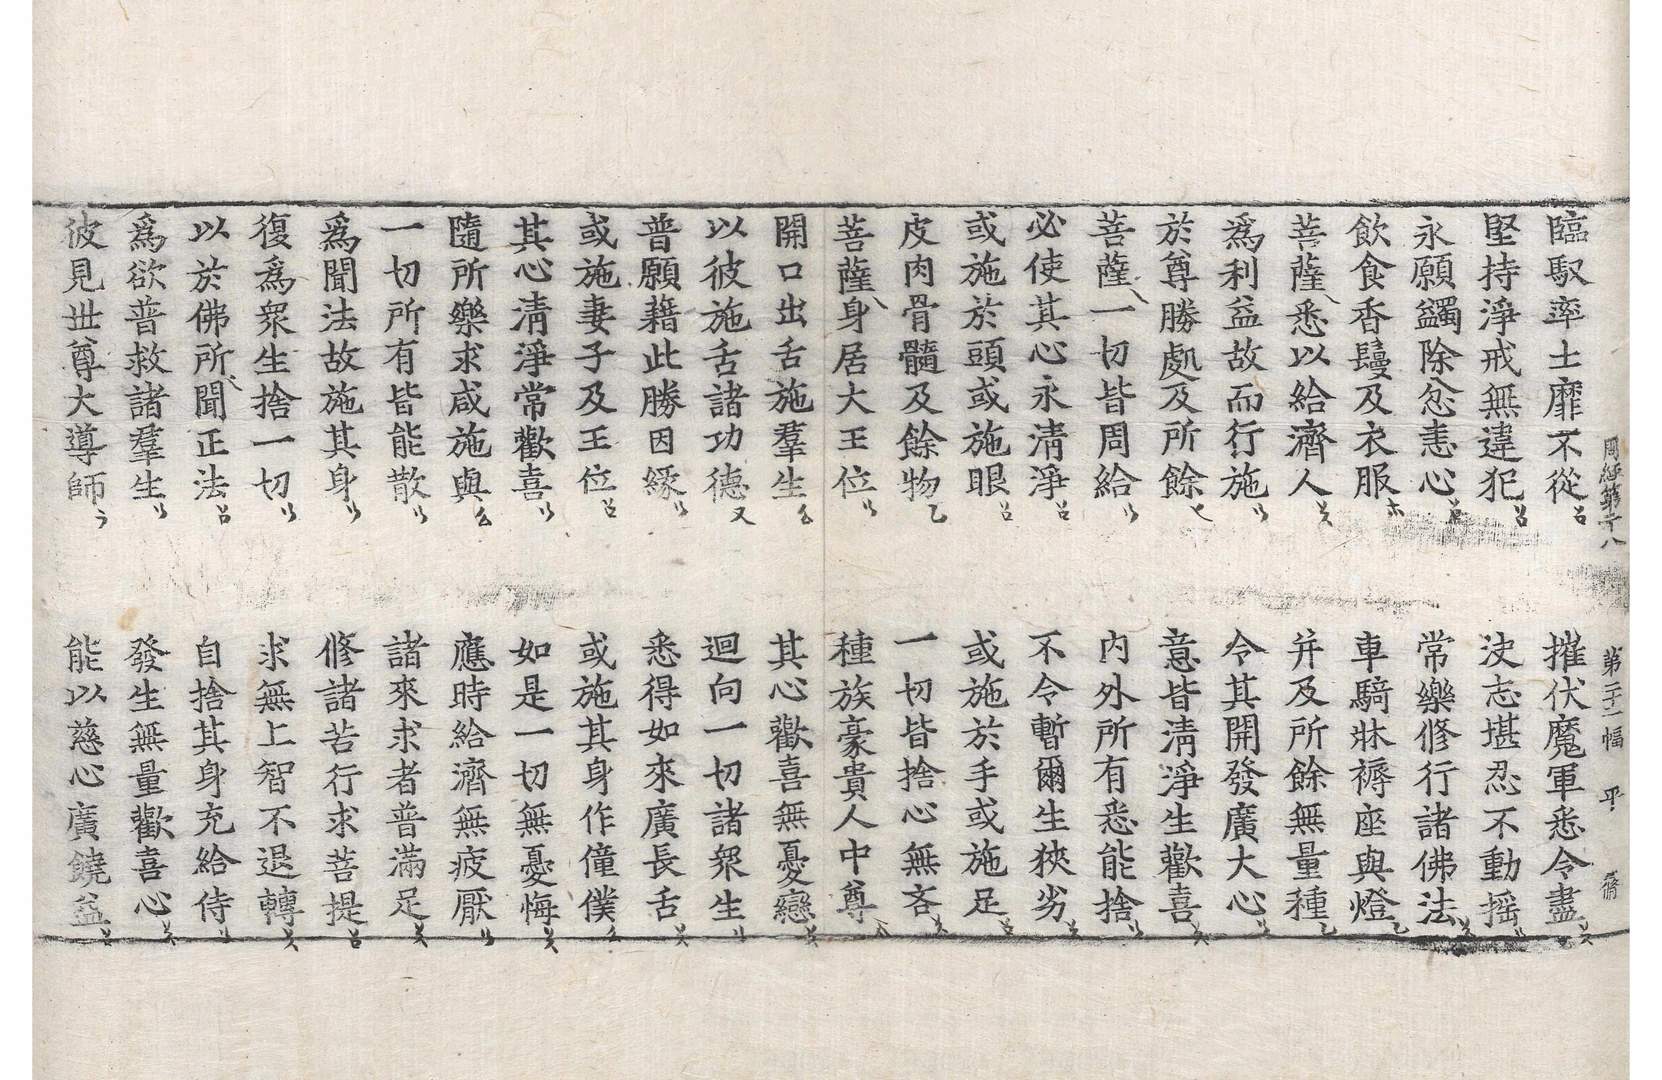 周經第二十八 第二十一幅 平
臨馭率土靡不從 摧伏魔軍悉令盡
堅持淨戒無違犯 決志堪忍不動搖
永願蠲除忿恚心 常樂修行諸佛法
飲食香鬘及衣服 車騎牀褥座與燈
菩薩悉以給濟人 并及所餘無量種
爲利益故而行施 令其開發廣大心
於尊勝處及所餘 意皆清淨生歡喜
菩薩一切皆周給 內外所有悉能捨
必使其心永清淨 不令暫爾生狹劣
或施於頭或施眼 或施於手或施足
皮肉骨髓及餘物 一切皆捨心無吝
菩薩身居大王位 種族豪貴人中尊
開口出舌施羣生 其心歡喜無憂戀
以彼施舌諸功德 迴向一切諸眾生
普願藉此勝因緣 悉得如來廣長舌
或施妻子及王位 或施其身作僮僕
其心清淨常歡喜 如是一切無憂悔
隨所樂求咸施與 應時給濟無疲厭
一切所有皆能散 諸來求者普滿足
爲聞法故施其身 修諸苦行求菩提
復爲眾生捨一切 求無上智不退轉
以於佛所聞正法 自捨其身充給侍
爲欲普救諸羣生 發生無量歡喜心
彼見世尊大導師 能以慈心廣饒益